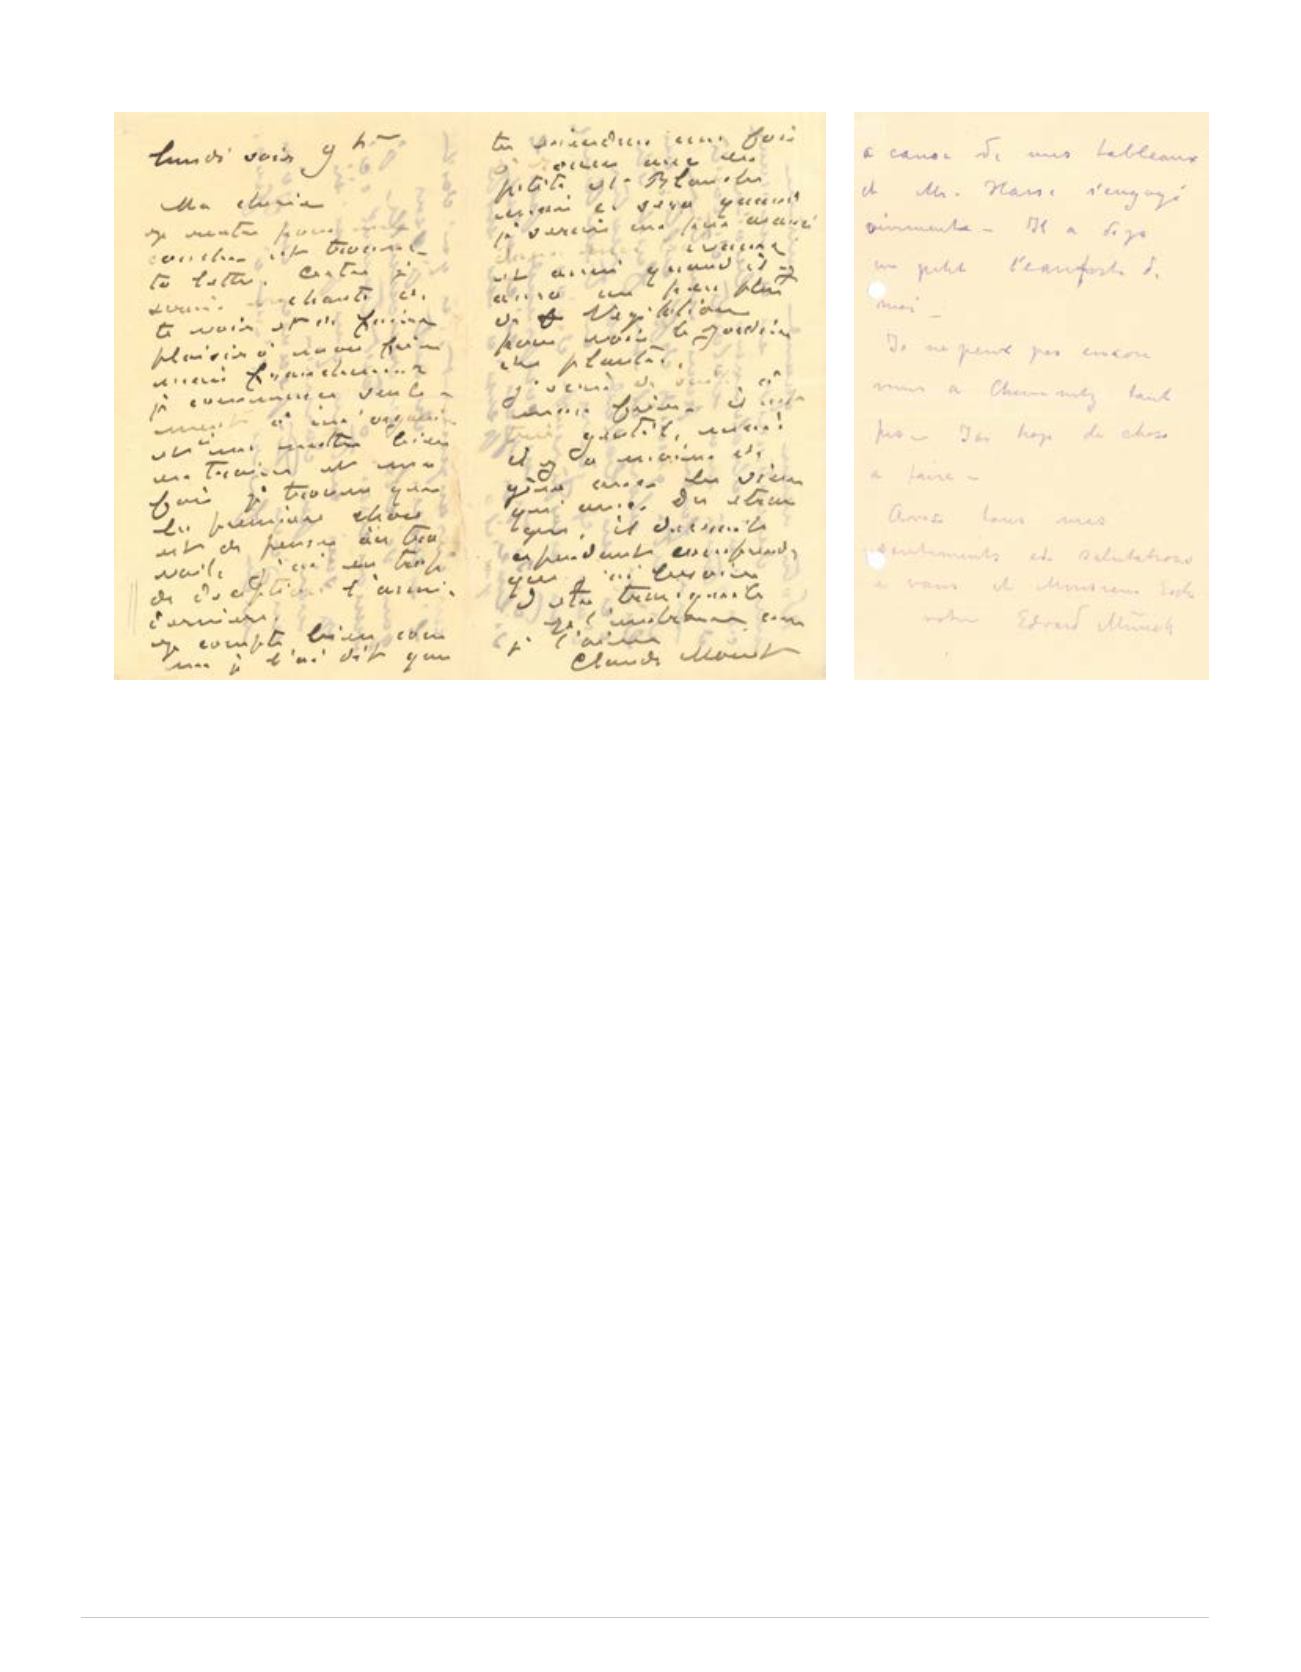 lundi soir 9 h
Ma chérie
Je rentre pour me
coucher et trouve
ta lettre. Certes je
serai enchanté de
te voir et de faire
plaisir à
mais franchement
je commence seule-
ment à m'organi
et me mettre bien
en train et une
fois je trouve que
la première chose
est de penser au tra
vail, j'ai eu trop
de déceptions l'année
dernière.
Je compte bien com
me je l'ai dit que
tu viendras une fois
avec une des
petites et Blanche
mais ce sera quand
je serai un peu avancé
et aussi quand il y
aura un peu plus
de Végétation
pour voir le jardin
des plantes.
quand il
il est
très gentil, mais
il y a moins de
gêne avec les siens
qu'avec des étran
gers, il
cependant comprendre
que j'ai besoin
d'être tranquille
Je t'embrasse com
je t'aime
Claude Monet
a cause de mes tableaux
et Mr. s'engage
vivement – Il a deja
un petit l'eauforte de
moi –
Je ne peux pas encore
venir a Chemnitz tant
pis – J'ai trop de chose
a faire –
Avec tous mes
sentiments et salutations
a vous et Monsieur
votre Edvard Munch